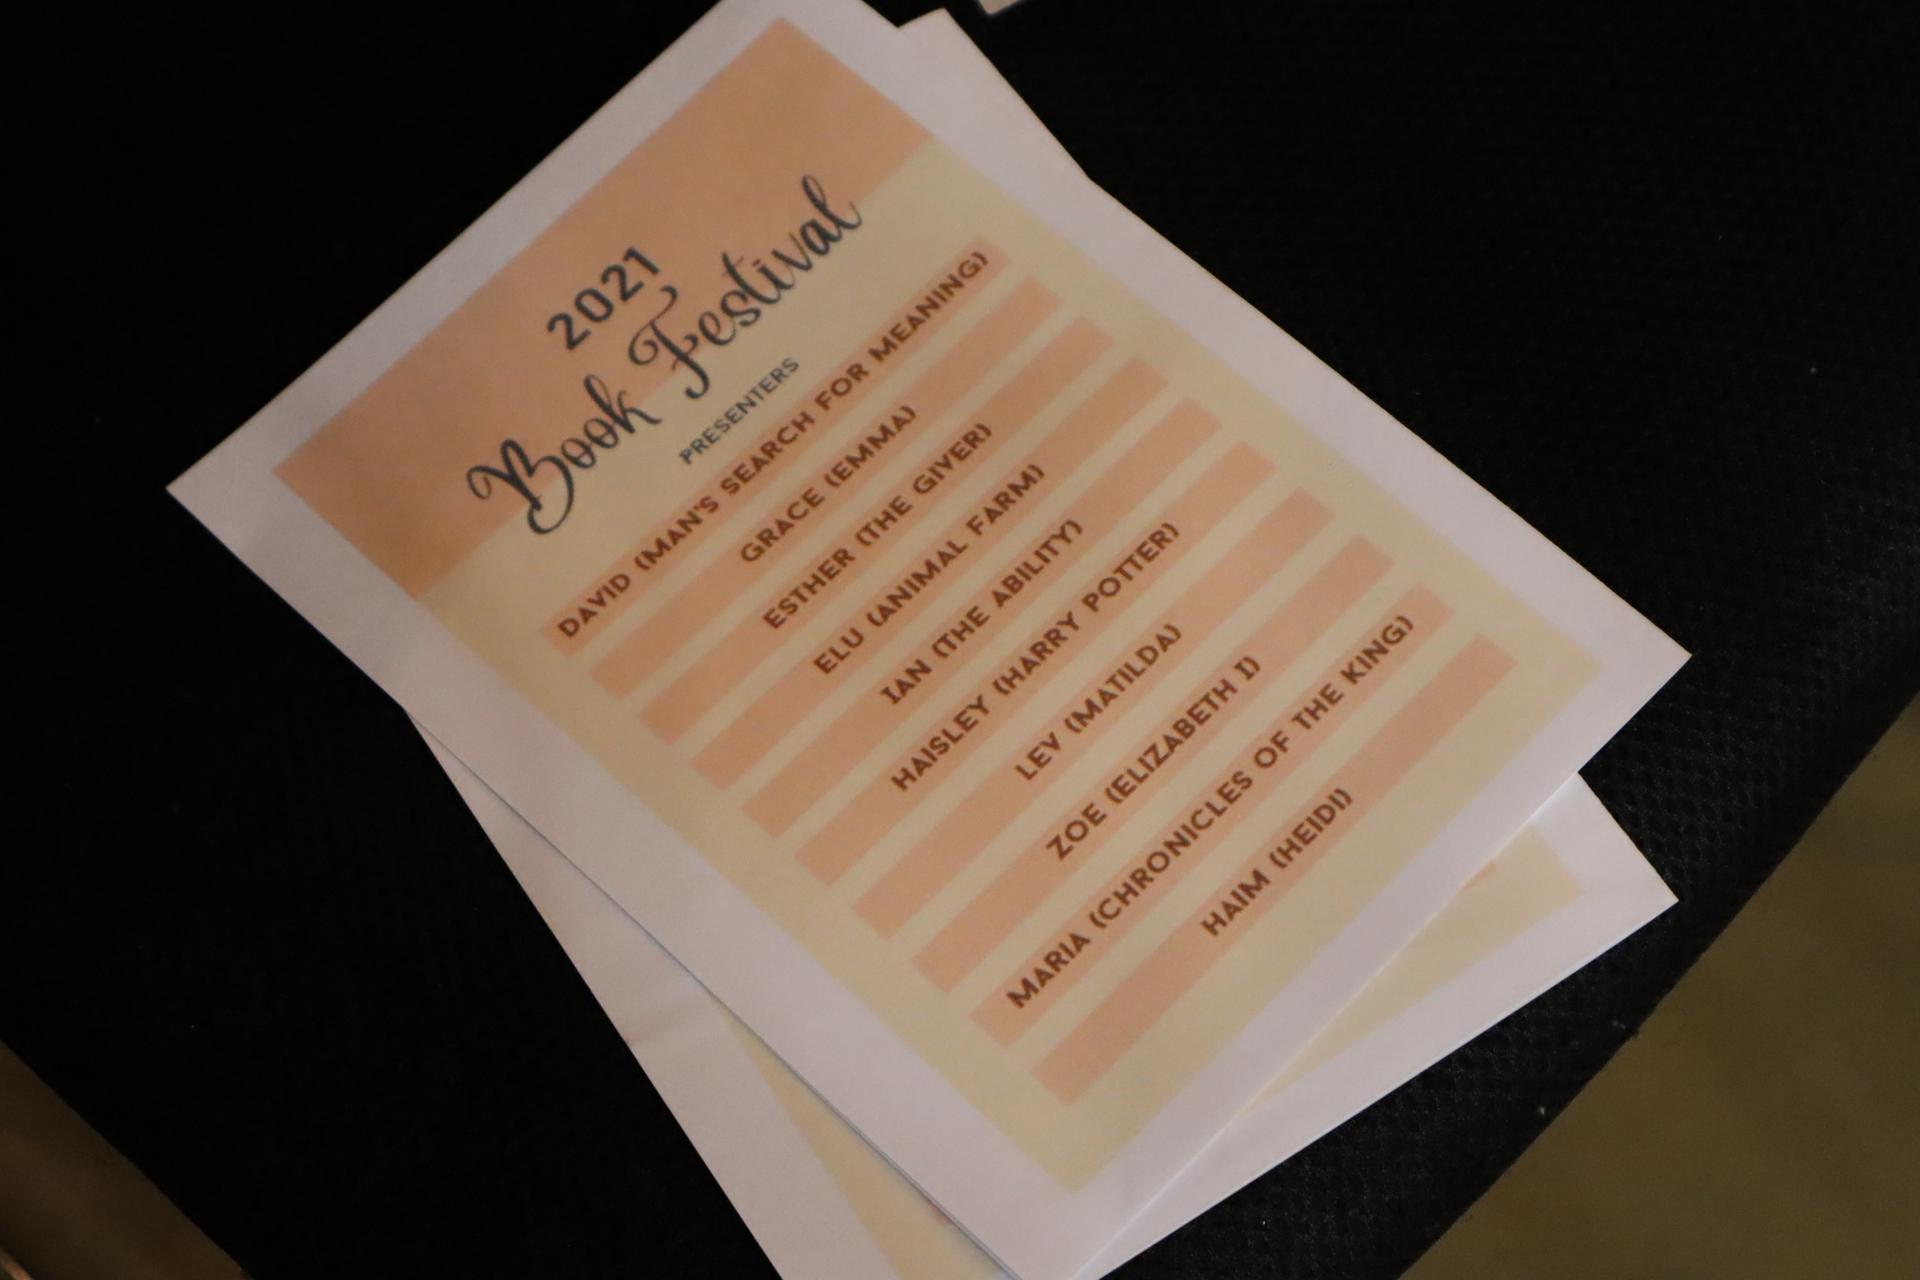 2021
Book Festival
PRESENTERS
DAVID (MAN'S SEARCH FOR MEANING)
GRACE (EMMA)
ESTHER (THE GIVER)
ELU (ANIMAL FARM)
IAN (THE ABILITY)
HAISLEY (HARRY POTTER)
LEV (MATILDA)
ZOE (ELIZABETH I)
MARIA (CHRONICLES OF THE KING)
HAIM (HEIDI)